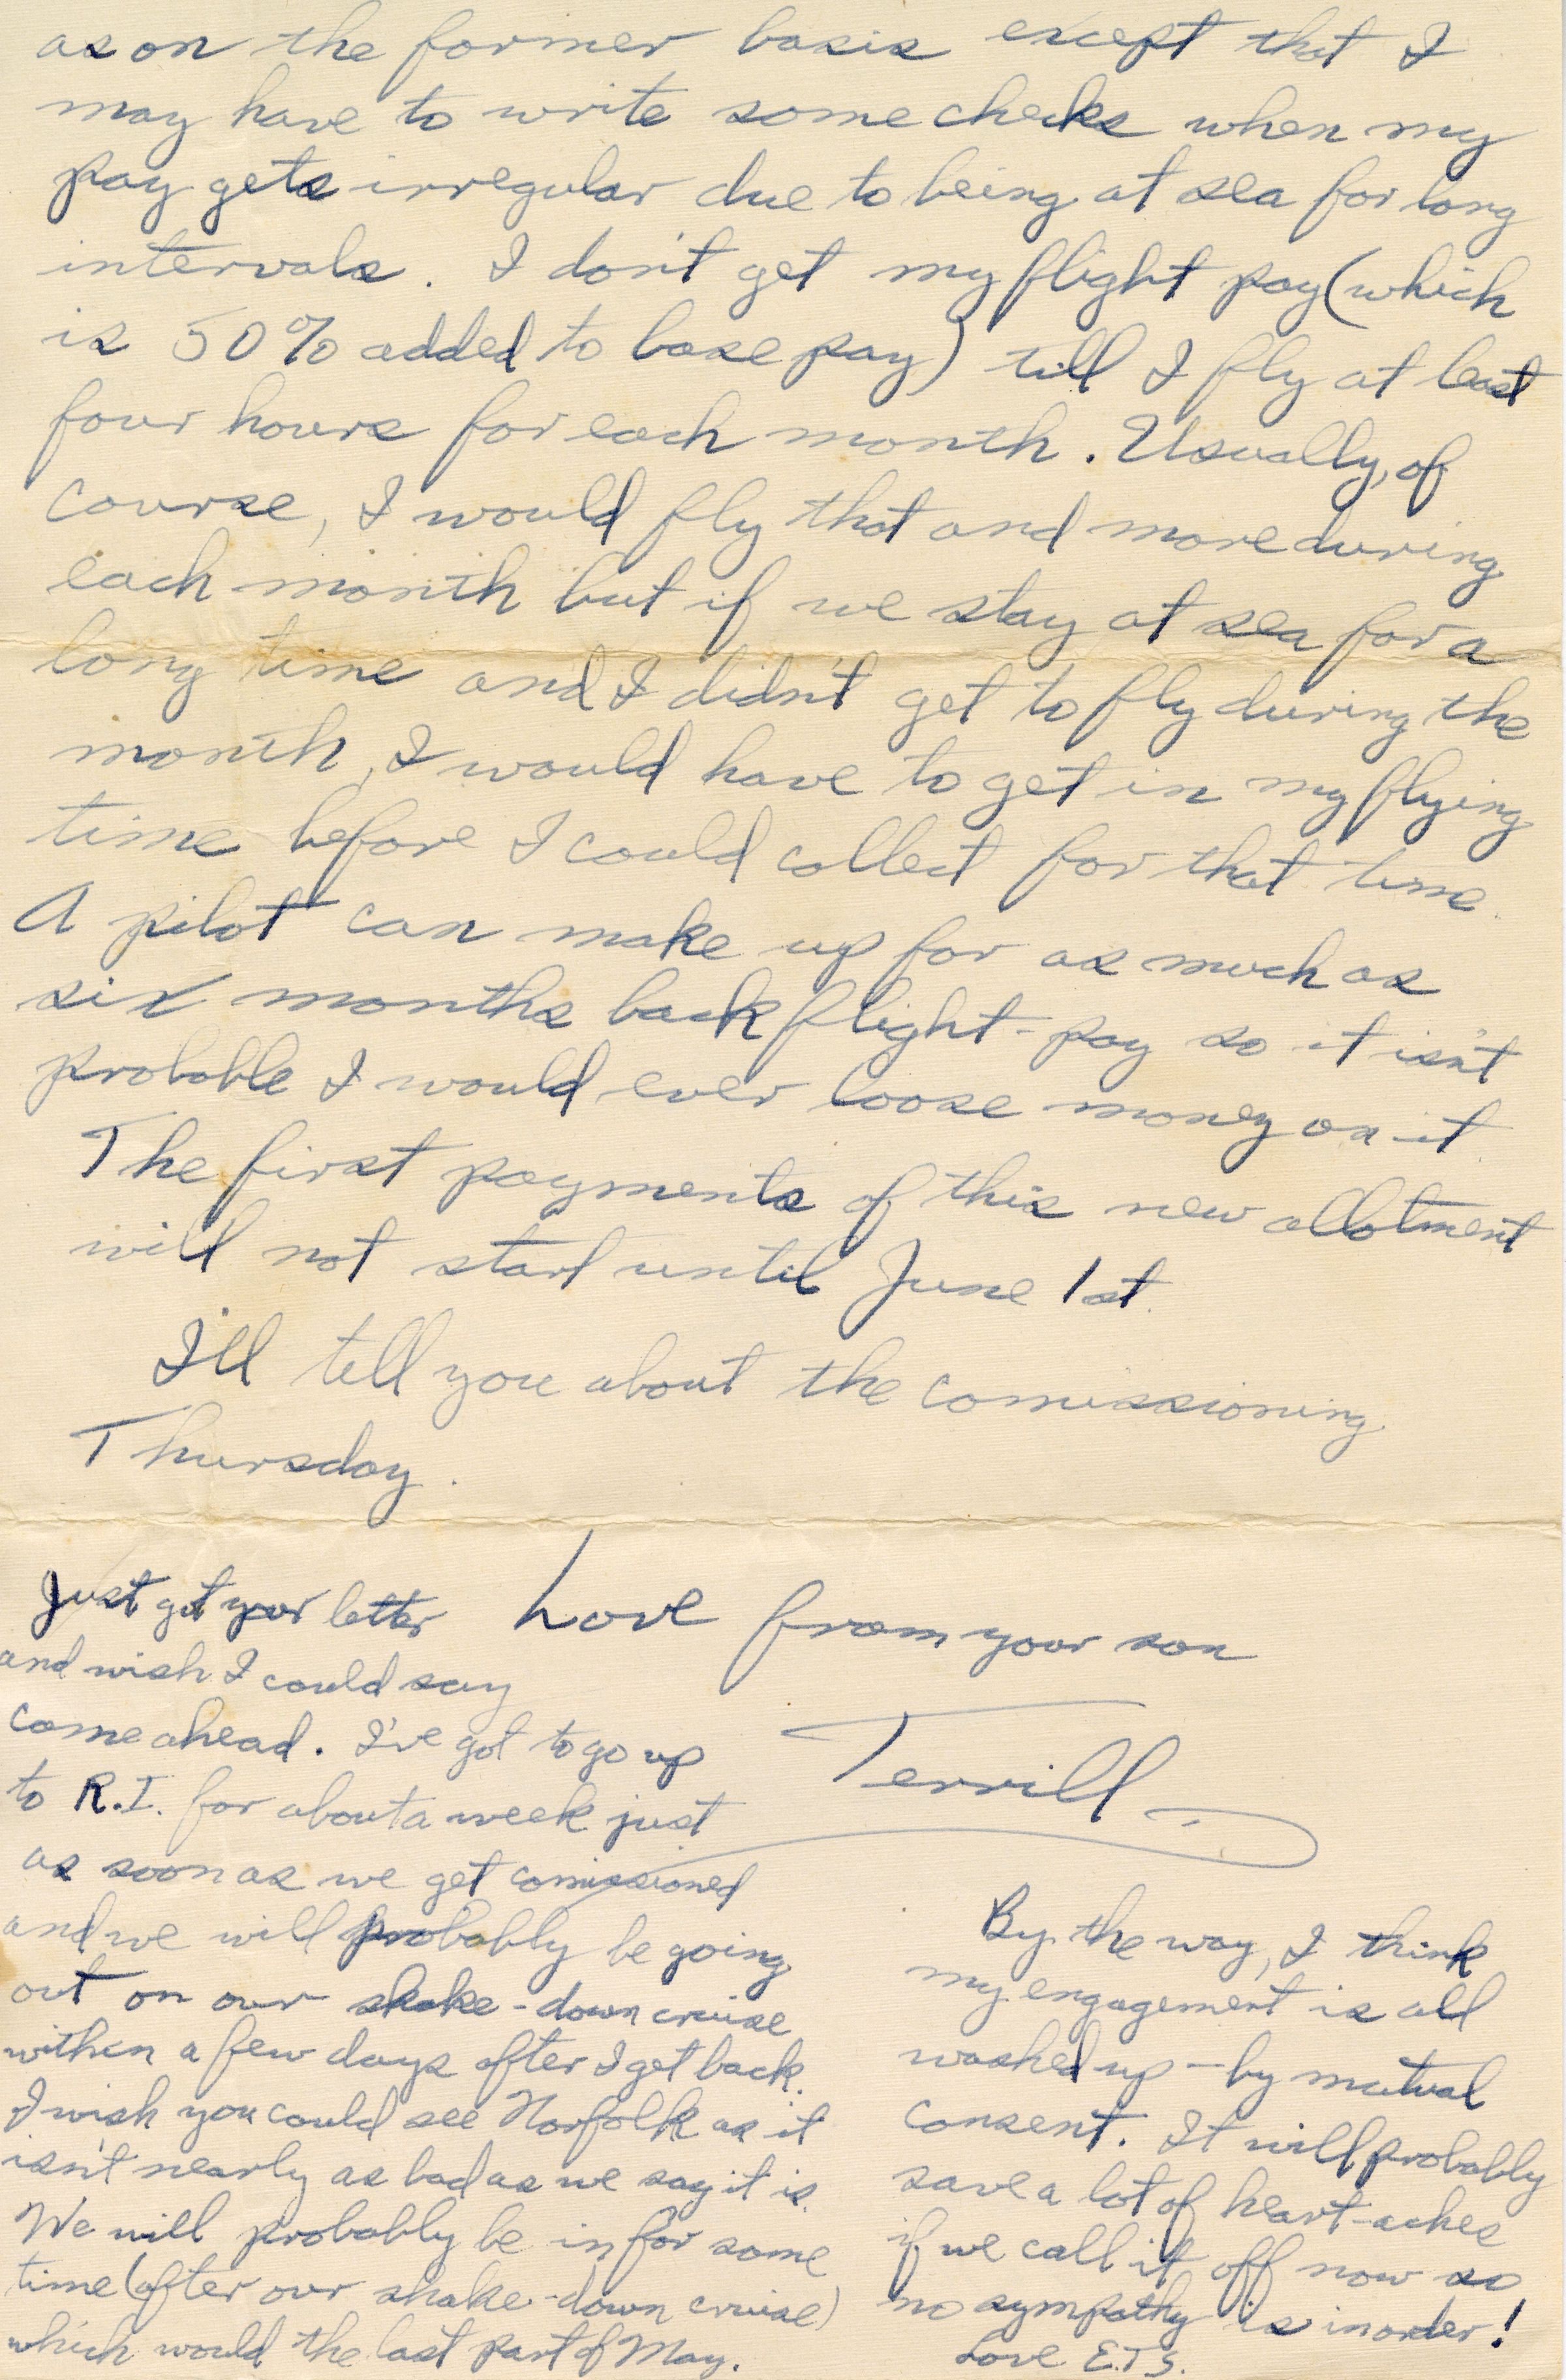 as on the former basis except that I
may have to write some checks when my
pay gets irregular due to being at sea for long
intervals. I don't get my flight pay (which
is 50% added to base pay) till I fly at least
four hours for each month. Usually, of
course, I would fly that and more during
each month but if we stay at sea for a
long time and I didn't get to fly during the
month, I would have to get in my flying
time before I could collect for that time.
A pilot can make up for as much as
six months back flight-pay so it isn't
probable I would ever loose money on it.
The first payments of this new allotment
will not start until June 1st.
I'll tell you about the comissioning
Thursday.
Love from your son
Terrill
Just got your letter
and wish I could say
come ahead. I've got to go up
to R.I. for about a week just
as soon as we get comissioned
and we will probably be going
out on our shake-down cruise
within a few days after I get back.
I wish you could see Norfolk as it
isn't nearly as bad as we say it is.
We will probably be in for some
time (after our shake-down cruise)
which would the last part of May.
By the way, I think
my engagement is all
washed up - by mutual
consent. It will probably
save a lot of heart-aches
if we call it off now so
no sympathy is in order!
Love E.T.S.